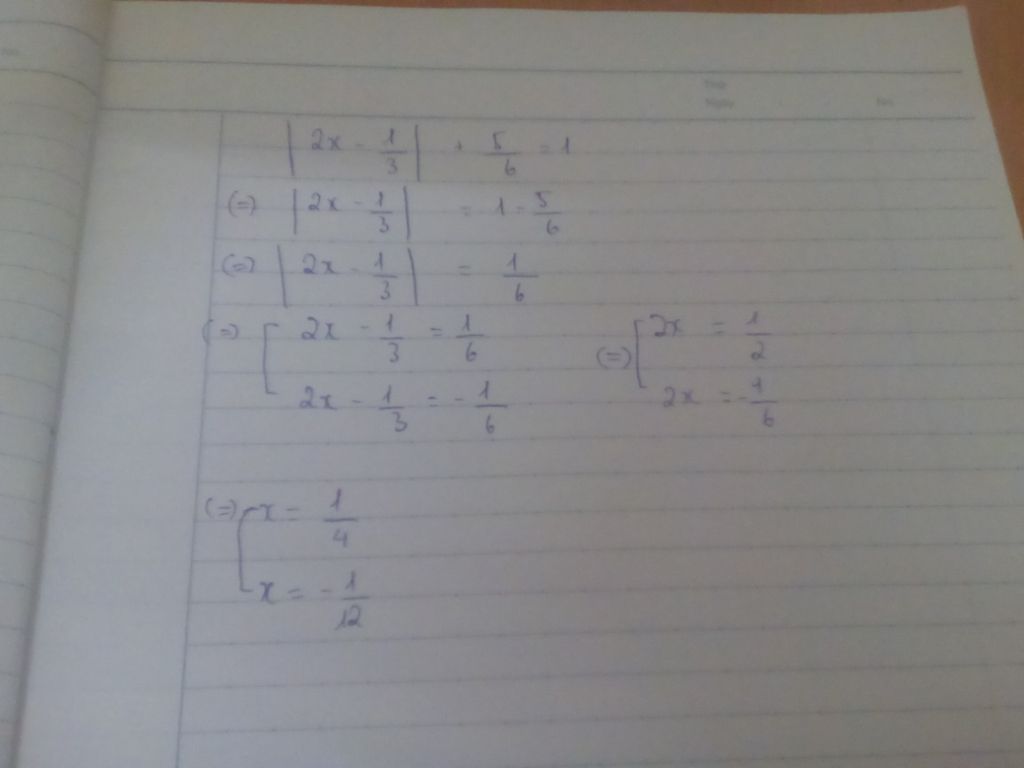 |2x - 1/3| + 5/6 = 1
(=) |2x - 1/3| = 1 - 5/6
(=) |2x - 1/3| = 1/6
(=) [ 2x - 1/3 = 1/6
2x - 1/3 = - 1/6
(=) [ 2x = 1/2
2x = - 1/6
(=) [ x = 1/4
x = - 1/12